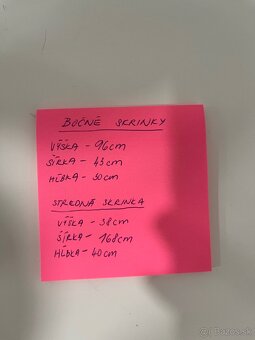 BOČNÉ SKRINKY
VÝŠKA - 96cm
ŠÍRKA - 43cm
HĹBKA - 30cm
STREDNÁ SKRINKA
VÝŠKA - 38cm
ŠÍRKA - 168cm
HĹBKA - 40cm
Bazoš.sk